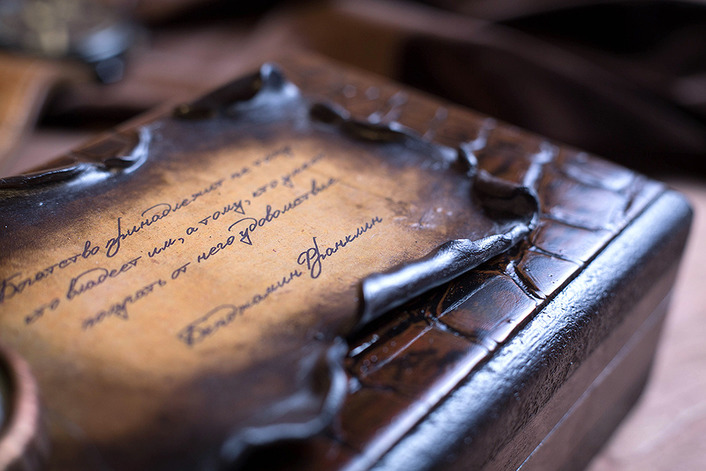 Богатство принадлежит не тому,
кто владеет им, а тому, кто умеет
получать от него удовольствие
Бенджамин Франклин